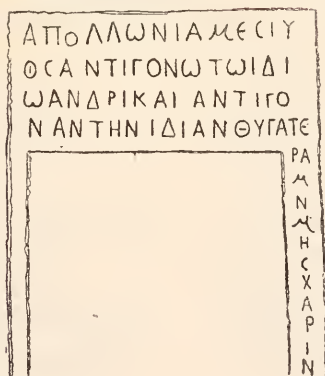 ΑΠΟΛΛΩΝΙΑΜΕϹΙΥ
ΘϹΑΝΤΙΓΟΝΩΤΩΙΔΙ
ΩΑΝΔΡΙΚΑΙΑΝΤΙΓΟ
ΝΑΝΤΗΝΙΔΙΑΝΘΥΓΑΤΕ
ΡΑ
Μ
Ν
Μ
Η
Ϲ
Χ
Α
Ρ
Ι
Ν